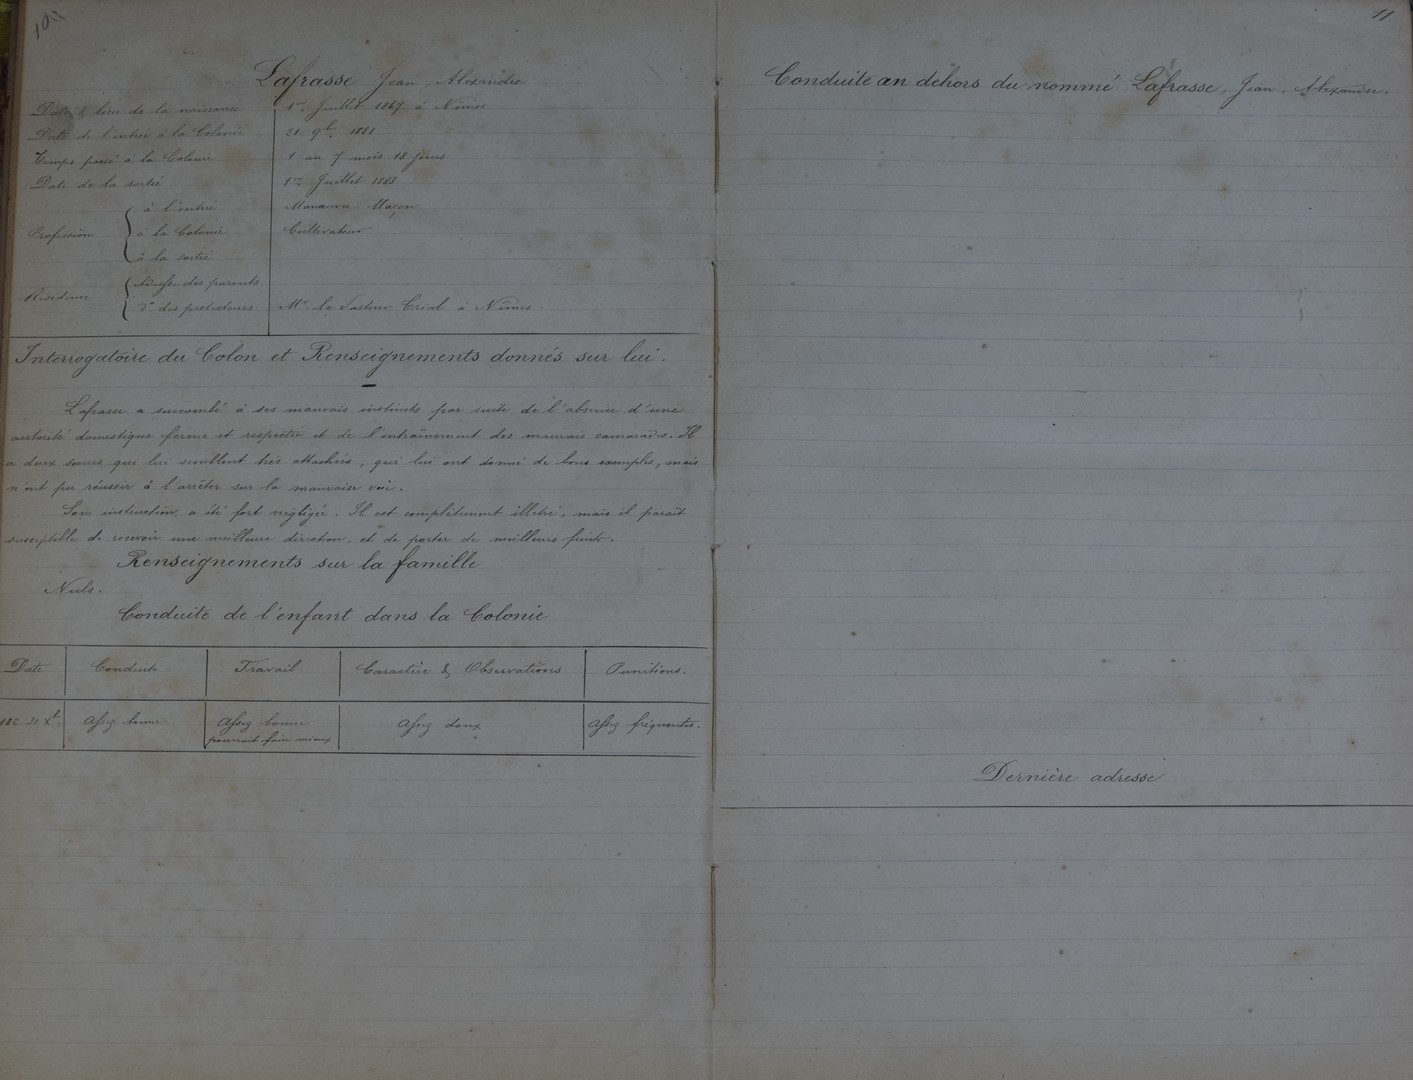 Lafrasse Jean, Alexandre
Date & lieu de la naissance 1er Juillet 1867 à Nîmes
Date de l'entrée à la Colonie 21 9bre 1881
Temps passé à la Colonie 1 an 7 mois 18 jours
Date de la sortie 1er Juillet 1883
Profession
à l'entrée Manœuvre-Maçon
à la Colonie Cultivateur
à la sortie
Résidence
Adresse des parents
do des protecteurs Mr le Pasteur à Nîmes.
Interrogatoire du Colon et Renseignements donnés sur lui.
Lafrasse a succombé à ses mauvais instincts par suite de l'absence d'une
autorité domestique ferme et respectée et de l'entraînement des mauvais camarades. Il
a deux sœurs qui lui semblent très attachées, qui lui ont donné de bons exemples, mais
n'ont pu réussir à l'arrêter sur la mauvaise voie.
Son instruction a été fort négligée. Il est complètement illettré, mais il paraît
susceptible de recevoir une meilleure direction, et de porter de meilleurs fruits.
Renseignements sur la famille
Nuls.
Conduite de l'enfant dans la Colonie
Date Conduite Travail Caractère & Observations Punitions.
Assez bonne Assez bonne Assez doux Assez fréquentes.
pourrait faire mieux
11
Conduite au dehors du nommé Lafrasse, Jean, Alexandre.
Dernière adresse